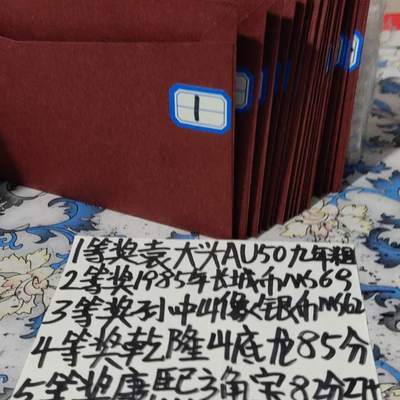 1
1等奖袁大头AU50九年粗
2等奖1985年长城币MS69
3等奖孙中山像银币MS62
4等奖乾隆山底龙85分
5等奖康熙3角宝82分